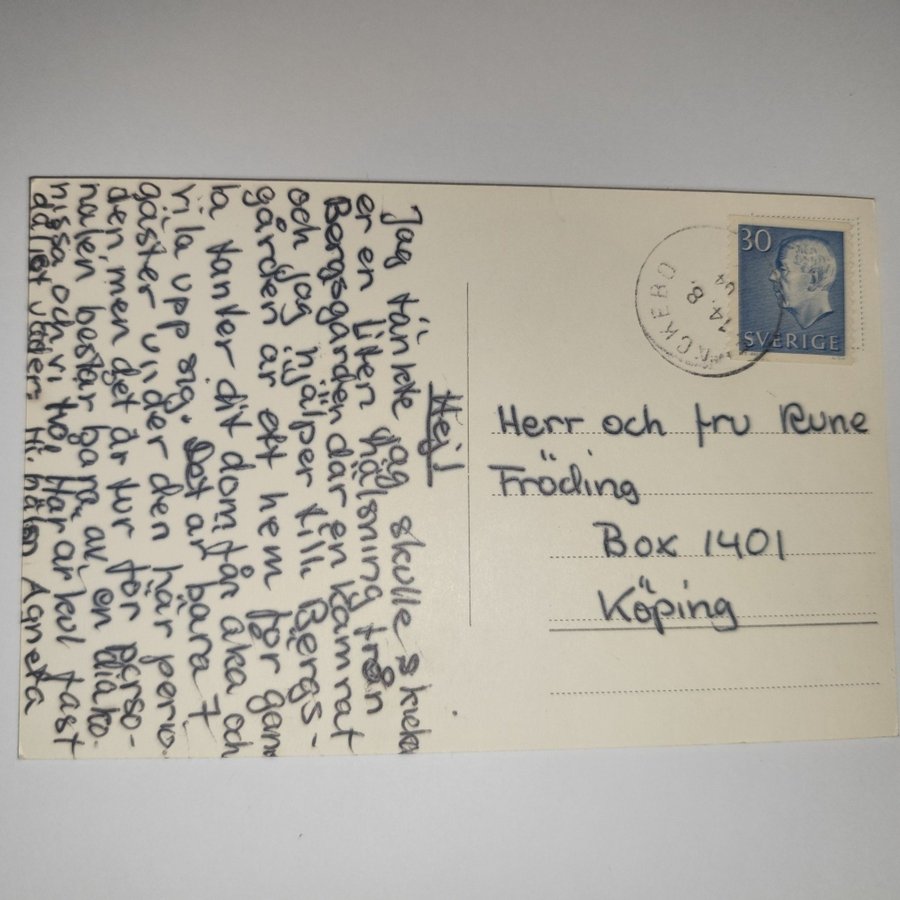 Hej!
Jag tänkte jag skulle skicka
er en liten hälsning från
Bergsgården där en kamrat
och jag hjälper till. Bergs-
gården är ett hem för gam
la tanter dit dom får åka och
vila upp sig. Det är bara 7
gäster under den här perio.
den, men det är tur för perso-
nalen består bara av en diako.
nissa och vi två. Här är kul fast
dåligt väder. Hälsn Agneta
30
SVERIGE
ACKEBO
14. 8.
64
Herr och fru Rune
Fröding
Box 1401
Köping